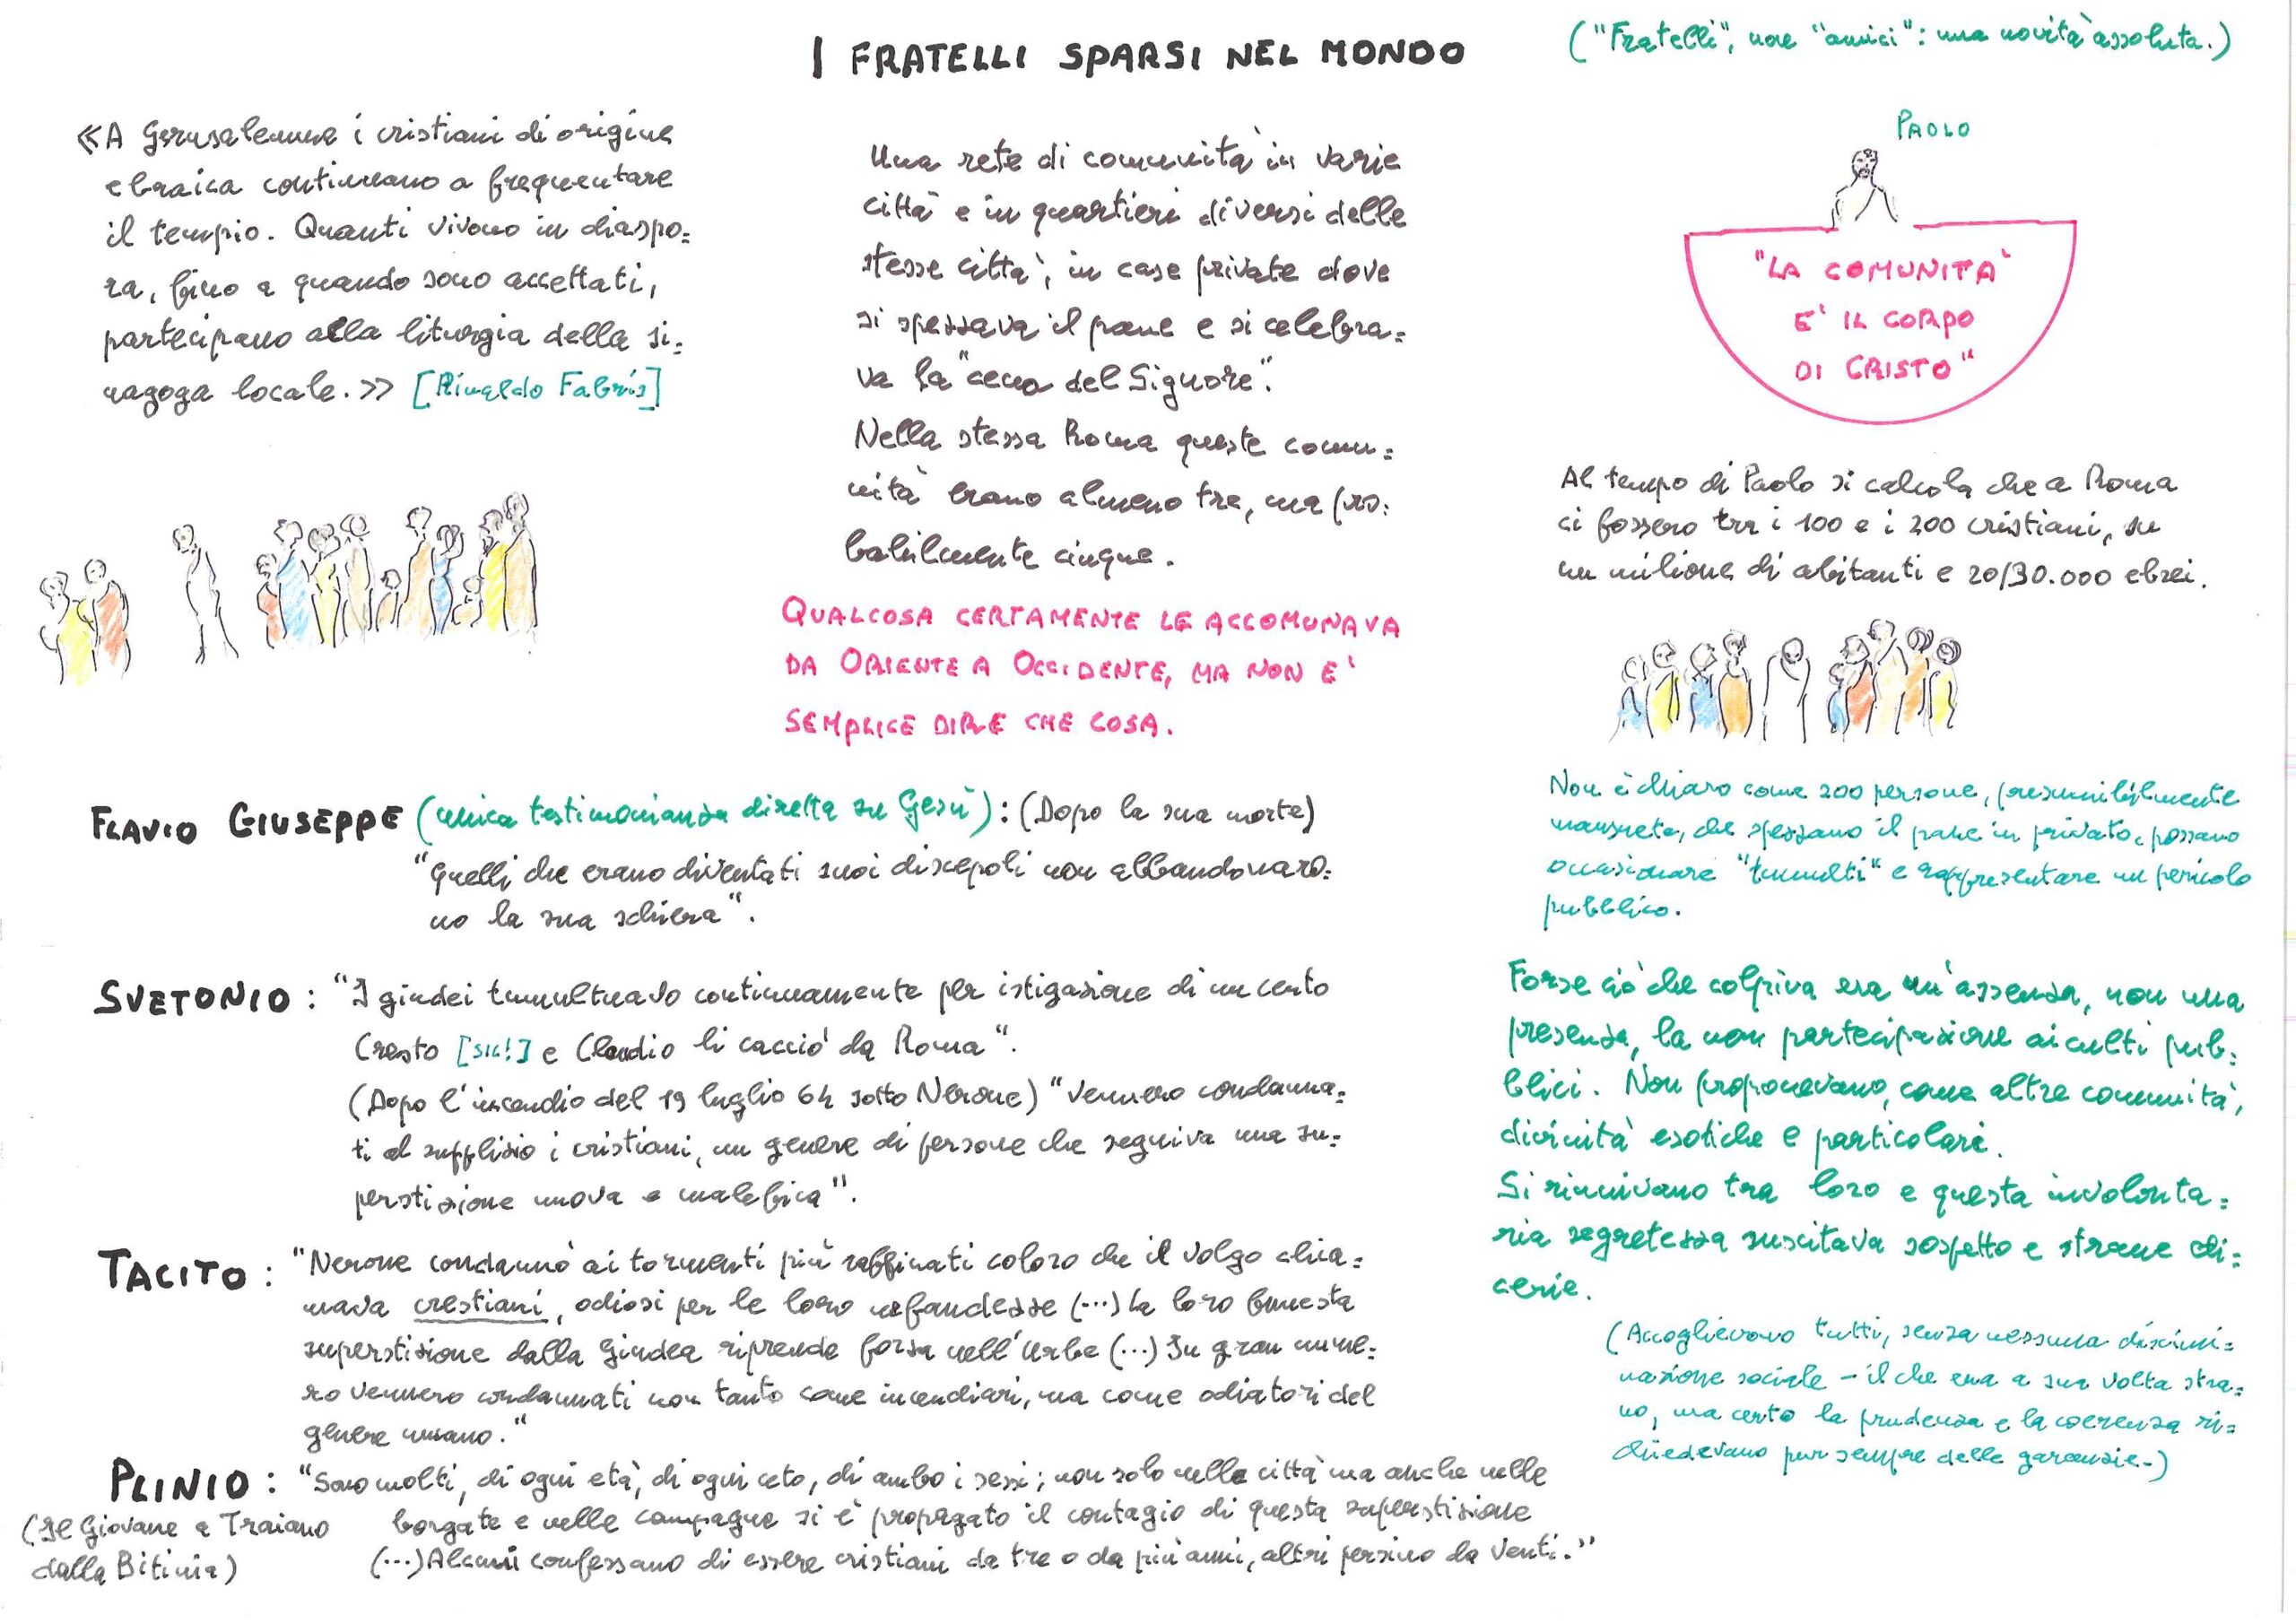 I FRATELLI SPARSI NEL MONDO
("Fratelli", non "amici": una novità assoluta.)
«A Gerusalemme i cristiani di origine
ebraica continuano a frequentare
il tempio. Quanti vivono in diaspo=
ra, fino a quando sono accettati,
partecipano alla liturgia della si=
nagoga locale.» [Rinaldo Fabris]
Una rete di comunità in varie
città e in quartieri diversi delle
stesse città, in case private dove
si spezzava il pane e si celebra=
va la "cena del Signore".
Nella stessa Roma queste comu=
nità erano almeno tre, ma pro=
babilmente cinque.
QUALCOSA CERTAMENTE LE ACCOMUNAVA
DA ORIENTE A OCCIDENTE, MA NON E'
SEMPLICE DIRE CHE COSA.
PAOLO
"LA COMUNITA'
E' IL CORPO
DI CRISTO"
Al tempo di Paolo si calcola che a Roma
ci fossero tra i 100 e i 200 cristiani, su
un milione di abitanti e 20/30.000 ebrei.
Non è chiaro come 200 persone, presumibilmente
mansuete, che spezzano il pane in privato, possano
occasionare "tumulti" e rappresentare un pericolo
pubblico.
Forse ciò che colpiva era un'assenza, non una
presenza, la non partecipazione ai culti pub=
blici. Non proponevano, come altre comunità,
divinità esotiche e particolari.
Si riunivano tra loro e questa involonta=
ria segretezza suscitava sospetto e strane di=
cerie.
(Accoglievano tutti, senza nessuna discrimi=
nazione sociale – il che era a sua volta stra=
no, ma certo la prudenza e la coerenza ri=
chiedevano pur sempre delle garanzie.)
FLAVIO GIUSEPPE (unica testimonianza diretta su Gesù): (Dopo la sua morte)
"Quelli che erano diventati suoi discepoli non abbandonaro=
no la sua schiera".
SVETONIO: "I giudei tumultuavo continuamente per istigazione di un certo
Cresto [sic!] e Claudio li cacciò da Roma".
(Dopo l'incendio del 19 luglio 64 sotto Nerone) "Vennero condanna=
ti al supplizio i cristiani, un genere di persone che seguiva una su=
perstizione nuova e malefica".
TACITO: "Nerone condannò ai tormenti più raffinati coloro che il volgo chia=
mava crestiani, odiosi per le loro nefandezze (...) La loro funesta
superstizione dalla Giudea riprende forza nell'Urbe (...) In gran nume=
ro vennero condannati non tanto come incendiari, ma come odiatori del
genere umano."
PLINIO: "Sono molti, di ogni età, di ogni ceto, di ambo i sessi; non solo nelle città ma anche nelle
(Il Giovane a Traiano borgate e nelle campagne si è propagato il contagio di questa superstizione
dalla Bitinia) (...) Alcuni confessano di essere cristiani da tre o da più anni, altri persino da venti."